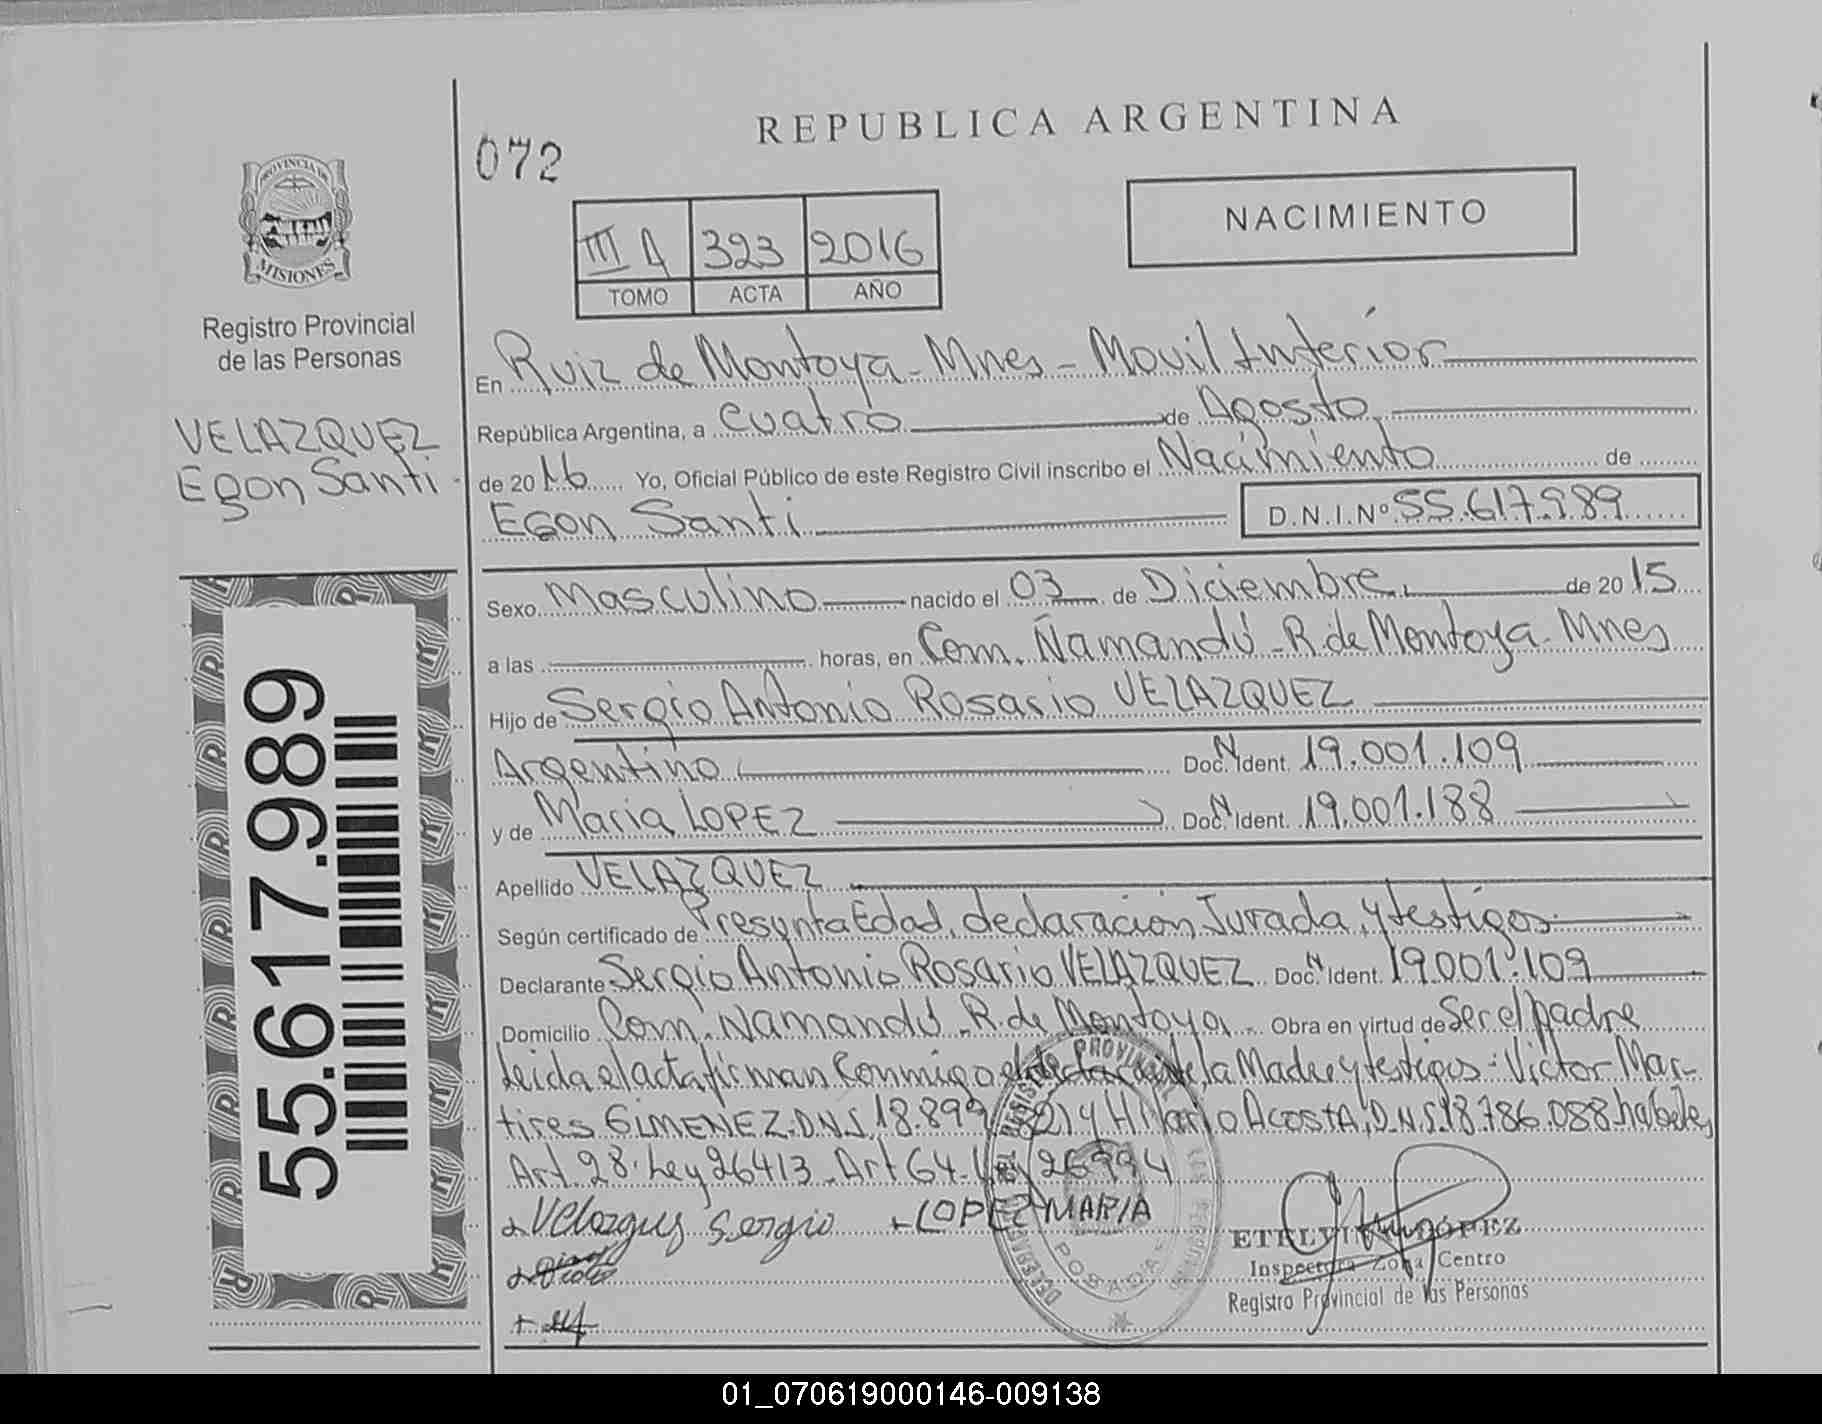 REPUBLICA ARGENTINA
072
NACIMIENTO
III A 323 2016
TOMO ACTA AÑO
PROVINCIA DE
MISIONES
Registro Provincial
de las Personas
VELAZQUEZ
Egon Santi
En Ruiz de Montoya - Mnes - Movil Interior
República Argentina, a cuatro de Agosto
de 2016 Yo, Oficial Público de este Registro Civil inscribo el Nacimiento de
Egon Santi D.N.I.Nº 55.617.989
Sexo Masculino nacido el 03 de Diciembre de 2015
a las horas, en Com. Ñamandú - R. de Montoya - Mnes
Hijo de Sergio Antonio Rosario VELAZQUEZ
Argentino Doc. N Ident. 19.001.109
y de Maria LOPEZ Doc. N Ident. 19.001.188
Apellido VELAZQUEZ
Según certificado de Presunta Edad, declaración Jurada, y testigos
Declarante Sergio Antonio Rosario VELAZQUEZ Doc. N Ident. 19.001.109
Domicilio Com. Ñamandú - R. de Montoya - Obra en virtud de Ser el padre
Leida el acta firman Conmigo el declarante la Madre y testigos: Victor Mar-
tires GIMENEZ D.N.I. 18.899 y Hilario ACOSTA, D.N.I. 18.786.088 habiles
Art. 28 - Ley 26413 - Art 64 - Ley 26994
Velazques Sergio LOPEZ MARIA
ETELVINA LÓPEZ
Inspectora Zona Centro
Registro Provincial de las Personas
POSADAS
55.617.989
01_070619000146-009138